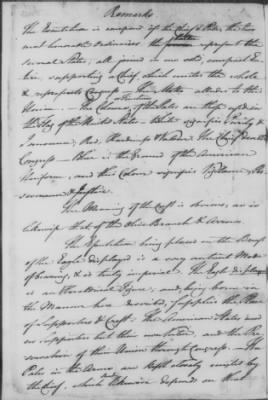 Remarks
The Escutcheon is composed of the Chief & Pale, the two
most honorable ordinaries. the latter represent the
several States; all joined in one solid, compact En-
tire, supporting a Chief, which unites the whole
& represents Congress — The Motto alludes to this
Union — The Colours of the Pales are those used in
the Flag of the United States — White signifies Purity &
Innocence; Red, Hardiness & Valour. The Chief denotes
Congress — Blue is the Ground of the American
Uniform, and this Colour signifies Vigilance, Per-
severance & Justice.
The Meaning of the Crest is obvious, as is
likewise that of the Olive Branch & Arrows.
The Escutcheon being placed on the Breast
of the Eagle displayed is a very antient Mode
of bearing, & is truly imperial. The Eagle displayed
is an Heraldical Figure; and, being borne in
the Manner here described, supplies the Place
of Supporters & Crest. The American States need
no Supporters but their own Virtue, and the Pre-
servation of their Union through Congress. — The
Pales in the Arms are kept closely united by
the Chief, which likewise depends on that